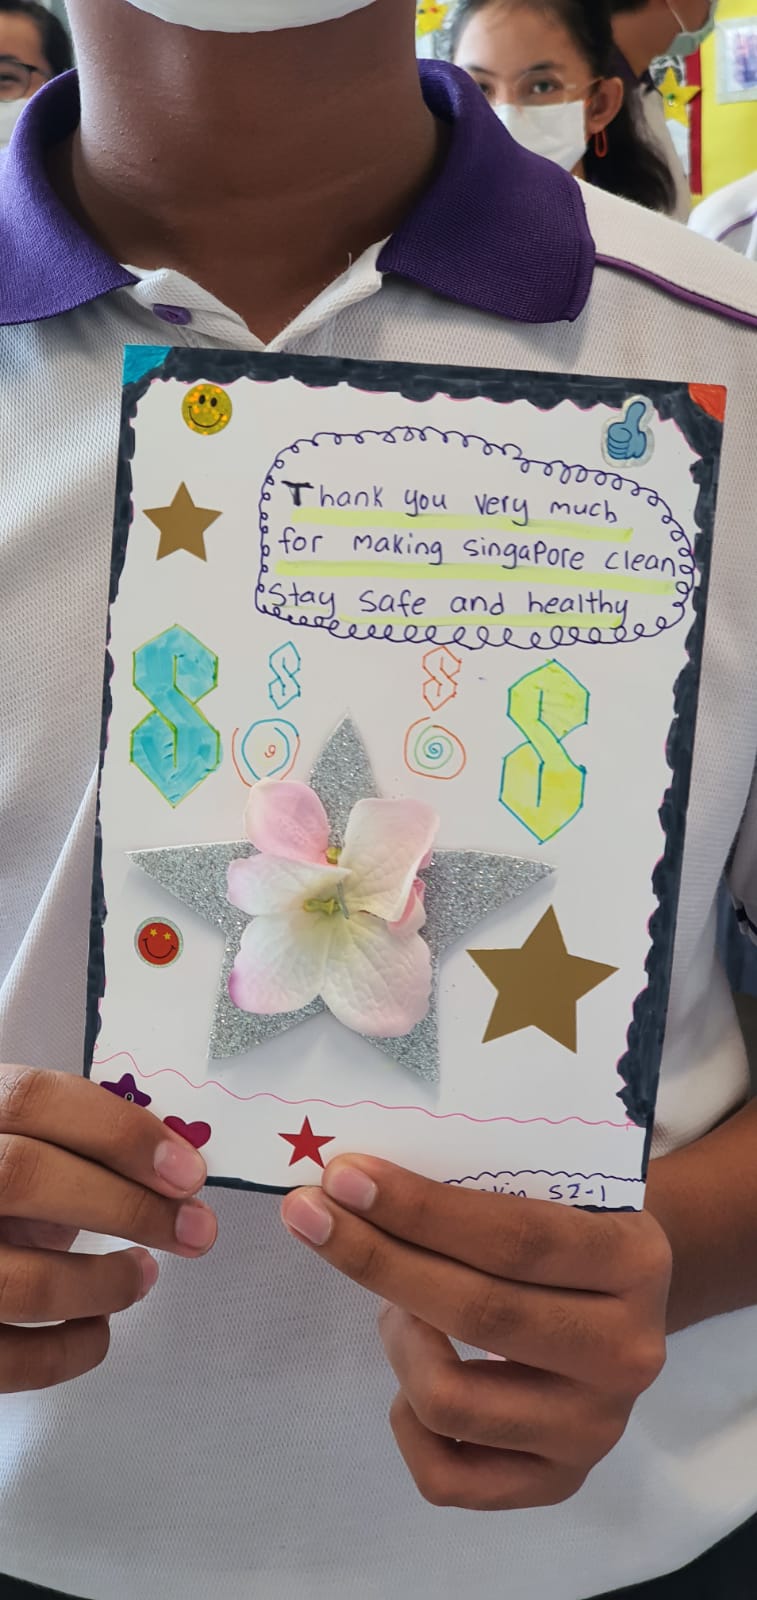 Thank you very much
for making singapore clean
stay safe and healthy
S S S S
S2-1